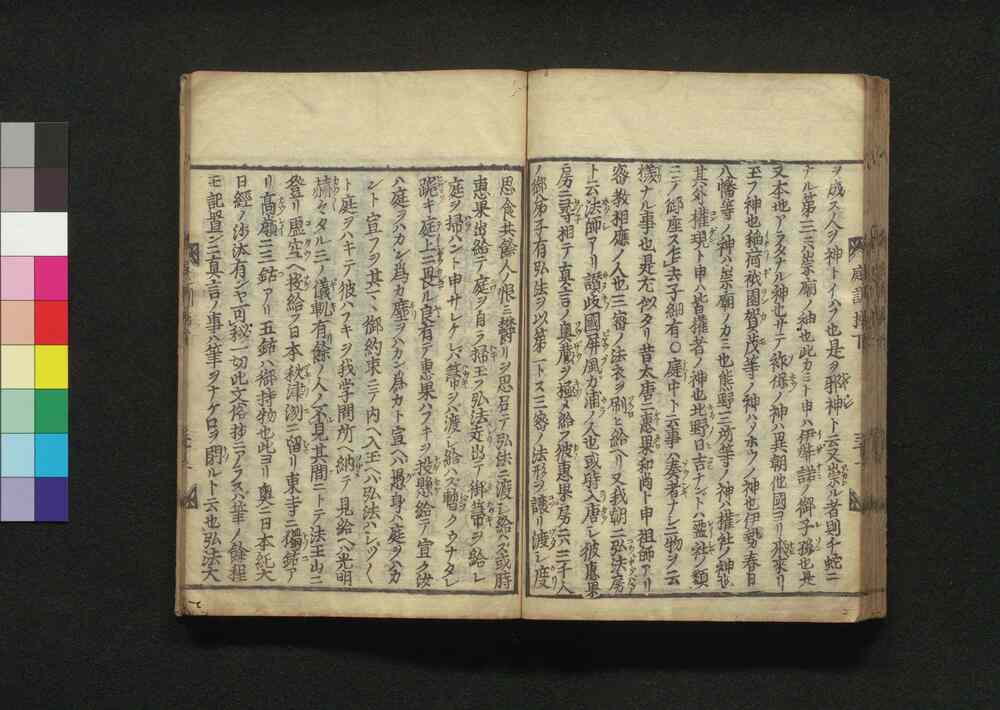 庭訓抄下
ヲ成ス人ヲ神トイハフ也是ヲ邪神ト云又崇ル者則チ蛇ニ
ナル第三ニ六崇廟ノ神也此カミト申ハ伊弉諾ノ御子孫也是
又本也アラタナル神也サテ称仰ノ神ハ異朝他國ヨリ飛來リ
玉フ神也稲荷祇園賀茂等ノ神ハホウノ神也伊勢春日
八幡等ノ神ハ崇廟ノカミ也熊野三所等ノ神ハ權社ノ神也
其外權現ト申ハ皆權者ノ神也北野日吉ナンドハ霊社ノ類
ニテ御座ス乍去子細有〇庭中ト云事ハ奏者ナシニ物ヲ云
樣ナル事也是尤似タリ昔太唐ニ惠果和尚ト申祖師アリ
密教相應ノ人也三密ノ法衣ヲ刷ヒ給ヘリ又我朝ニ弘法房
ト云法師アリ讃岐國屏風カ浦ノ人也或時入唐シ彼惠果
房ニ尋相テ真言ノ奥蔵ヲ極メ給フ彼惠果ノ房ニ六三千人
ノ御弟子有弘法ヲ以第一トス三密ノ法形ヲ讓リ渡シ度
思食共餘人ノ恨ニ欝リヲ思召テ弘法ニ渡シ給ハズ或時
惠果出給テ庭ヲ自ラ掃玉フ弘法走出テ御箒ヲ給レ
庭ヲ掃ハント申サレケレバ箒ヲハ渡シ給ハズ暫クウナタレ
跪キ庭上ニ畏ル良有テ惠果ハフキヲ投懸給テ宣ク汝
ハ庭ヲハカン爲カ塵ヲハカン爲カト宣ヘハ愚身ハ庭ヲハカ
ント宣フヲ其マヽ御約束ニテ内ヘ入王ヘハ弘法ハシヅ〱
ト庭ヲハキテ彼ハフキヲ我学問所ヘ納テ見給ヘバ光明
赫タル三ノ儀軌有餘ノ人ノ不見其間ニトテ法王山ニ
登リ虚空ヘ投給フ日本秋津洲ニ留リ東寺ニ獨鈷ア
リ高嶺ニ三鈷アリ五鈷ハ御持物也此ヨリ奥ニ日本紀大
日經ノ沙汰有シヤ可秘一切此文俗抄ニアラスハ筆ノ餘程
モ記置シニ真言ノ事ハ筆ヲナケロヲ閉ルト云也弘法大